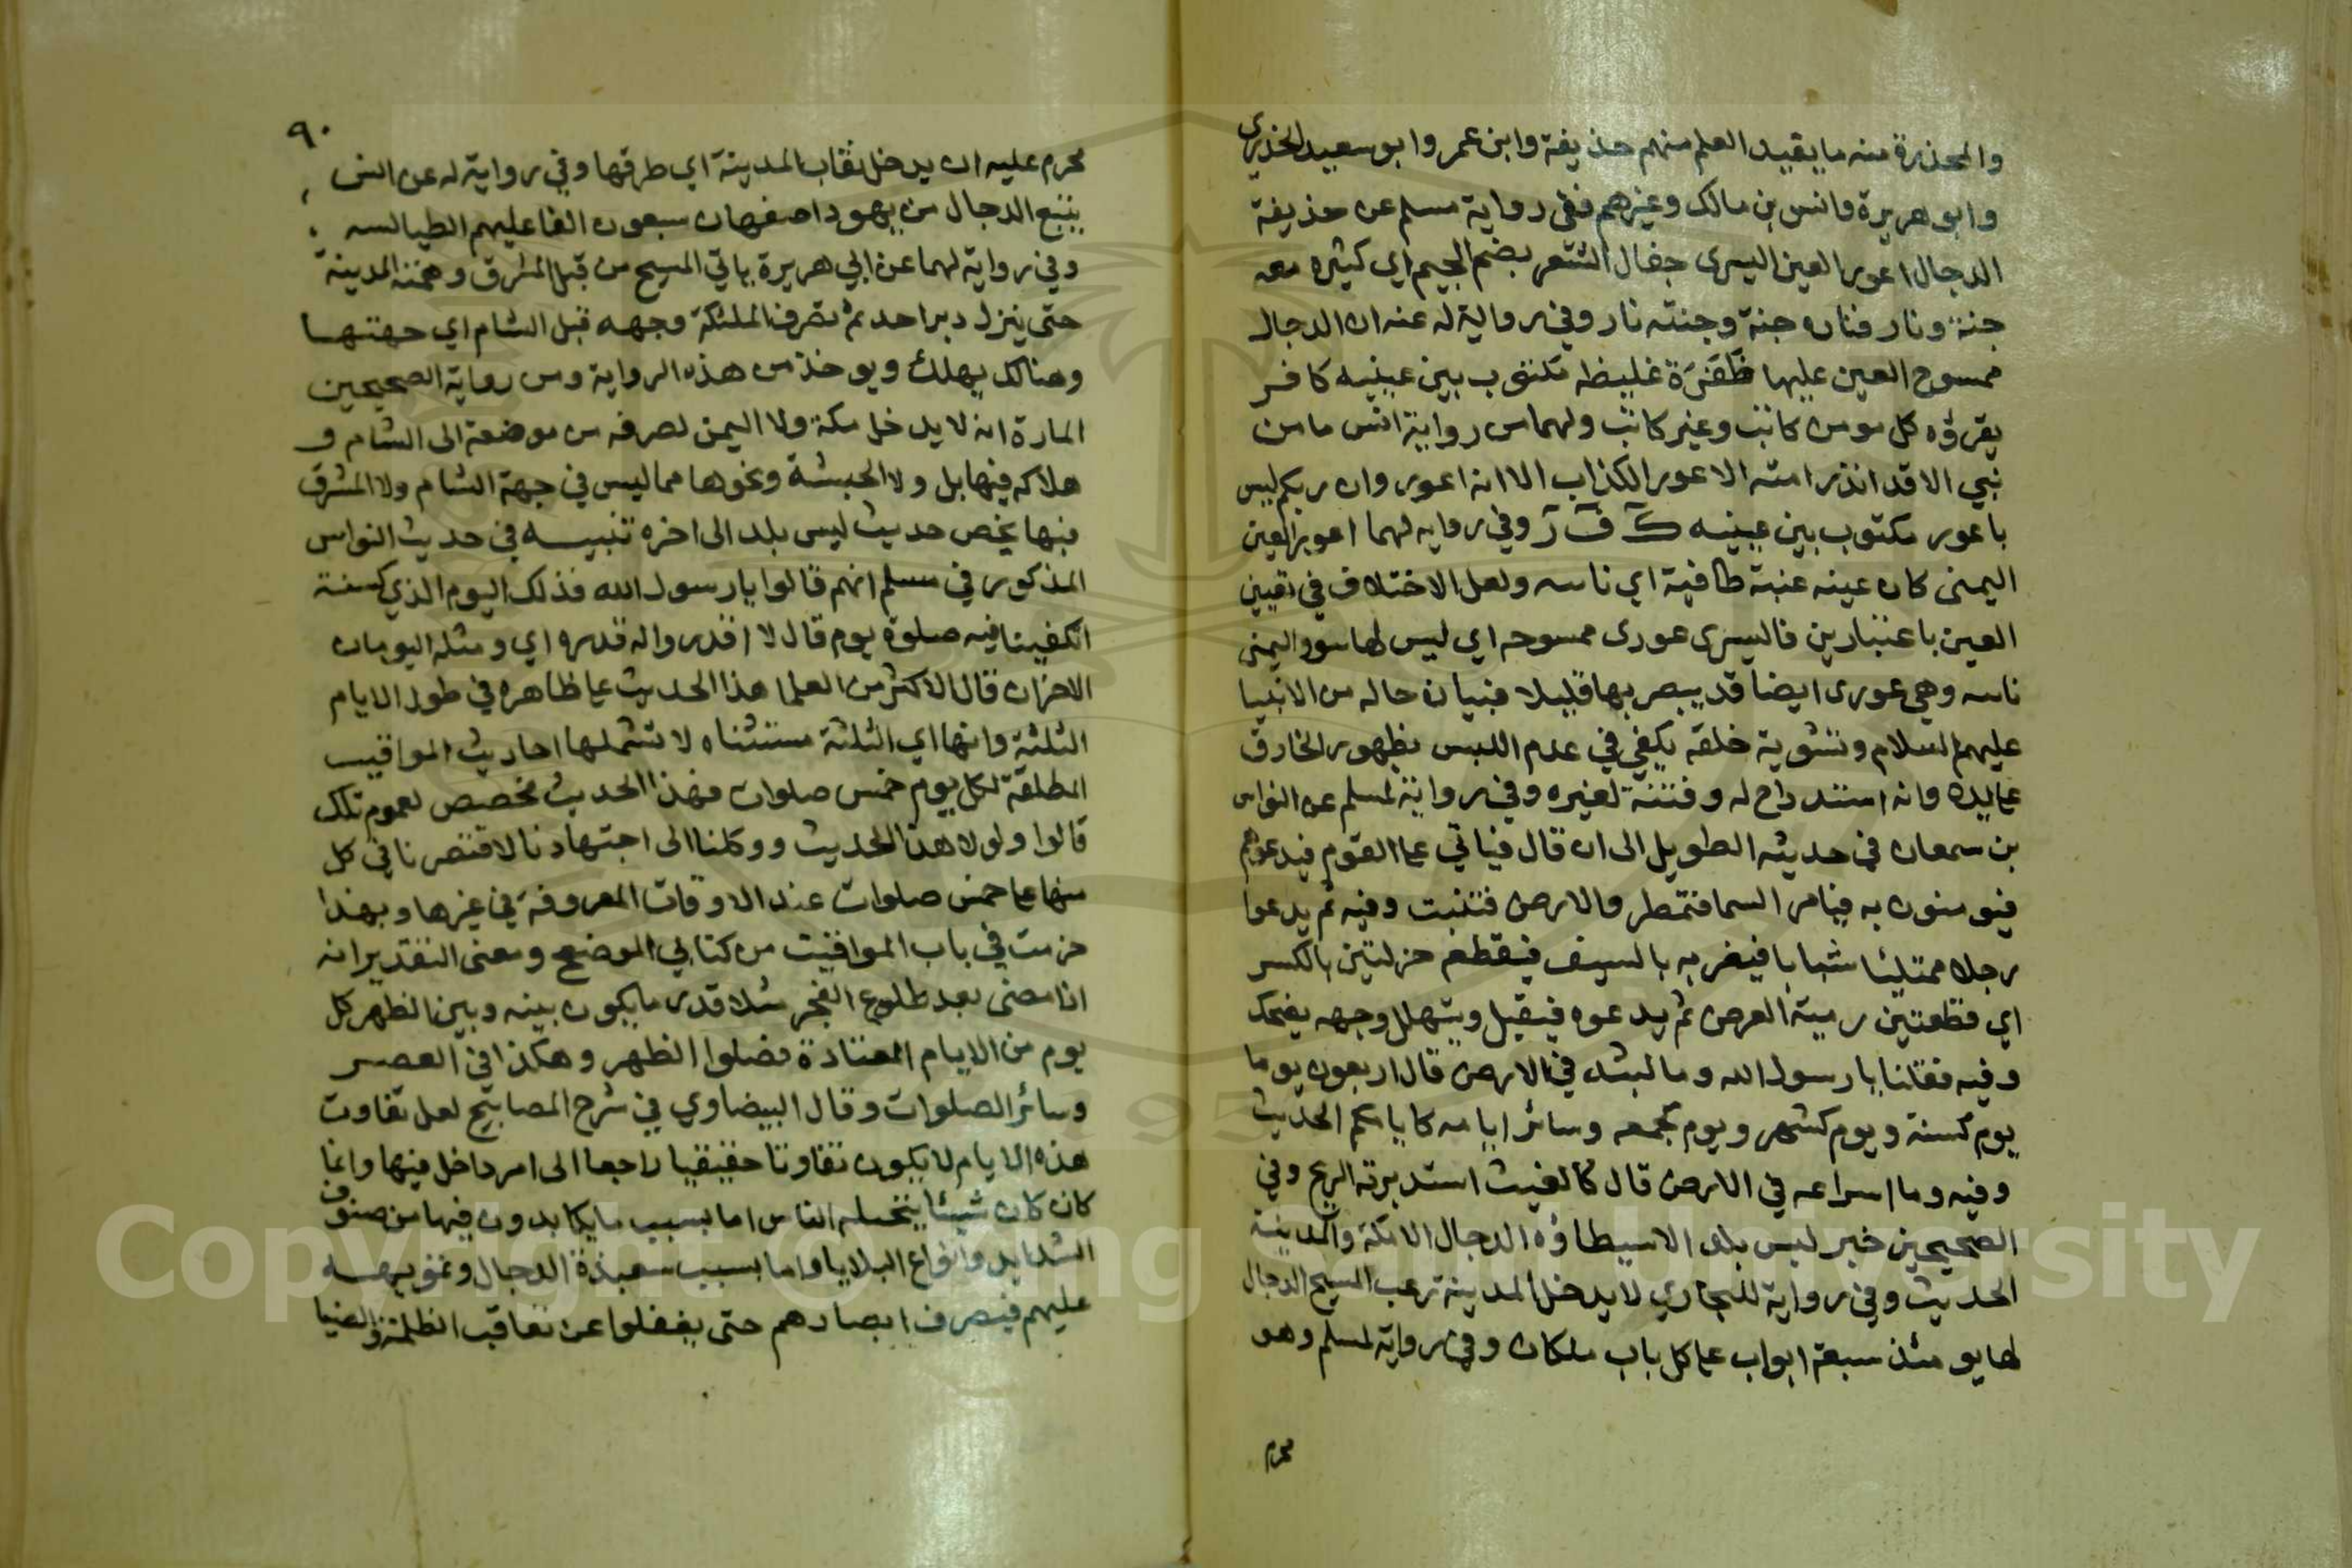 والمحذرة منه ما يفيد العلم منهم حذيفة وابن عمر وابو سعيد الخدري
وابو هريرة وانس بن مالك وغيرهم ففي رواية مسلم عن حذيفة
الدجال اعور العين اليسرى جفال الشعر بضم الجيم اي كثيره معه
جنة ونار فناره جنة وجنته نار وفي رواية له عنه ان الدجال
ممسوح العين عليها ظفرة غليظه مكتوب بين عينيه كافر
يقرؤه كل مومن كاتب وغير كاتب ولهما من رواية انس ما من
نبي الا قد انذر امته الاعور الكذاب الا انه اعور وان ربكم ليس
باعور مكتوب بين عينيه ك ف ر وفي روايه لهما اعور العين
اليمنى كان عينه عنبة طافية اي ناتيه ولعل الاختلاف في تعيين
العين باعتبارين فاليسرى عورى ممسوحه اي ليس لها سود واليمنى
ناتيه وهي عورى ايضا قد يبصر بها قليلا فبيان حاله من الانبيا
عليهم السلام وتشوية خلقه يكفي في عدم اللبس بظهور الخارق
على يده وانه استدراج له وفتنة لغيره وفي رواية لمسلم عن النواس
بن سمعان في حديثه الطويل الى ان قال فياتي على القوم فيدعوهم
فيومنون به فيامر السما فتمطر والارض فتنبت وفيه ثم يدعوا
رجلا ممتليا شبابا فيضربه بالسيف فيقطعه جزلتين بالكسر
اي قطعتين رمية الغرض ثم يدعوه فيقبل ويتهلل وجهه يضحك
وفيه فقلنا يا رسول الله وما لبثه في الارض قال اربعون يوما
يوم كسنة ويوم كشهر ويوم كجمعه وسائر ايامه كايامكم الحديث
وفيه وما اسراعه في الارض قال كالغيث استدبرته الريح وفي
الصحيحين خبر ليس بلد الا سيطاؤه الدجال الا مكة والمدينة
الحديث وفي رواية للبخاري لا يدخل المدينة رعب المسيح الدجال
لها يومئذ سبعة ابواب على كل باب ملكان وفي رواية لمسلم وهو
محرم
٩٠
محرم عليه ان يدخل نقاب المدينة اي طرقها وفي رواية له عن انس
يتبع الدجال من يهود اصفهان سبعون الفا عليهم الطيالسه
وفي رواية لهما عن ابي هريرة ياتي المسيح من قبل المشرق وهمته المدينة
حتى ينزل دبر احد ثم تصرف الملئكة وجهه قبل الشام اي جهتها
وهنالك يهلك ويوخذ من هذه الرواية ومن رواية الصحيحين
المارة انه لا يدخل مكة ولا اليمن لصرفه من موضعه الى الشام و
هلاكه فيها بل ولا الحبشة ونحوها مما ليس في جهة الشام ولا المشرق
فبها يخص حديث ليس بلد الى اخره تنبيه في حديث النواس
المذكور في مسلم انهم قالوا يا رسول الله فذلك اليوم الذي كسنة
اتكفينا فيه صلوة يوم قال لا اقدروا له قدره اي ومثله اليومان
الاخران قال الاكثر من العلما هذا الحديث على ظاهره في طول الايام
الثلثة وانها اي الثلثة مستثناه لا تشملها احاديث المواقيت
المطلقة لكل يوم خمس صلوات فهذا الحديث مخصص لعموم تلك
قالوا ولولا هذا الحديث ووكلنا الى اجتهادنا لاقتصرنا في كل
منها على خمس صلوات عند الاوقات المعروفة في غيرها وبهذا
جزمت في باب المواقيت من كتابي الموضع ومعنى التقدير انه
اذا مضى بعد طلوع الفجر مثلا قدر ما يكون بينه وبين الظهر كل
يوم من الايام المعتادة فصلوا الظهر وهكذا في العصر
وسائر الصلوات وقال البيضاوي في شرح المصابيح لعل تفاوت
هذه الايام لا يكون تفاوتا حقيقيا راجعا الى امر داخل فيها وانما
كان كان شيئا يتخيله الناس اما بسبب ما يكابدون فيها من صنوف
الشدايد وانواع البلايا واما بسبب شعبذة الدجال وتمويهه
عليهم فيصرف ابصارهم حتى يغفلوا عن تعاقب الظلمة والضيا
Copyright © King Saud University